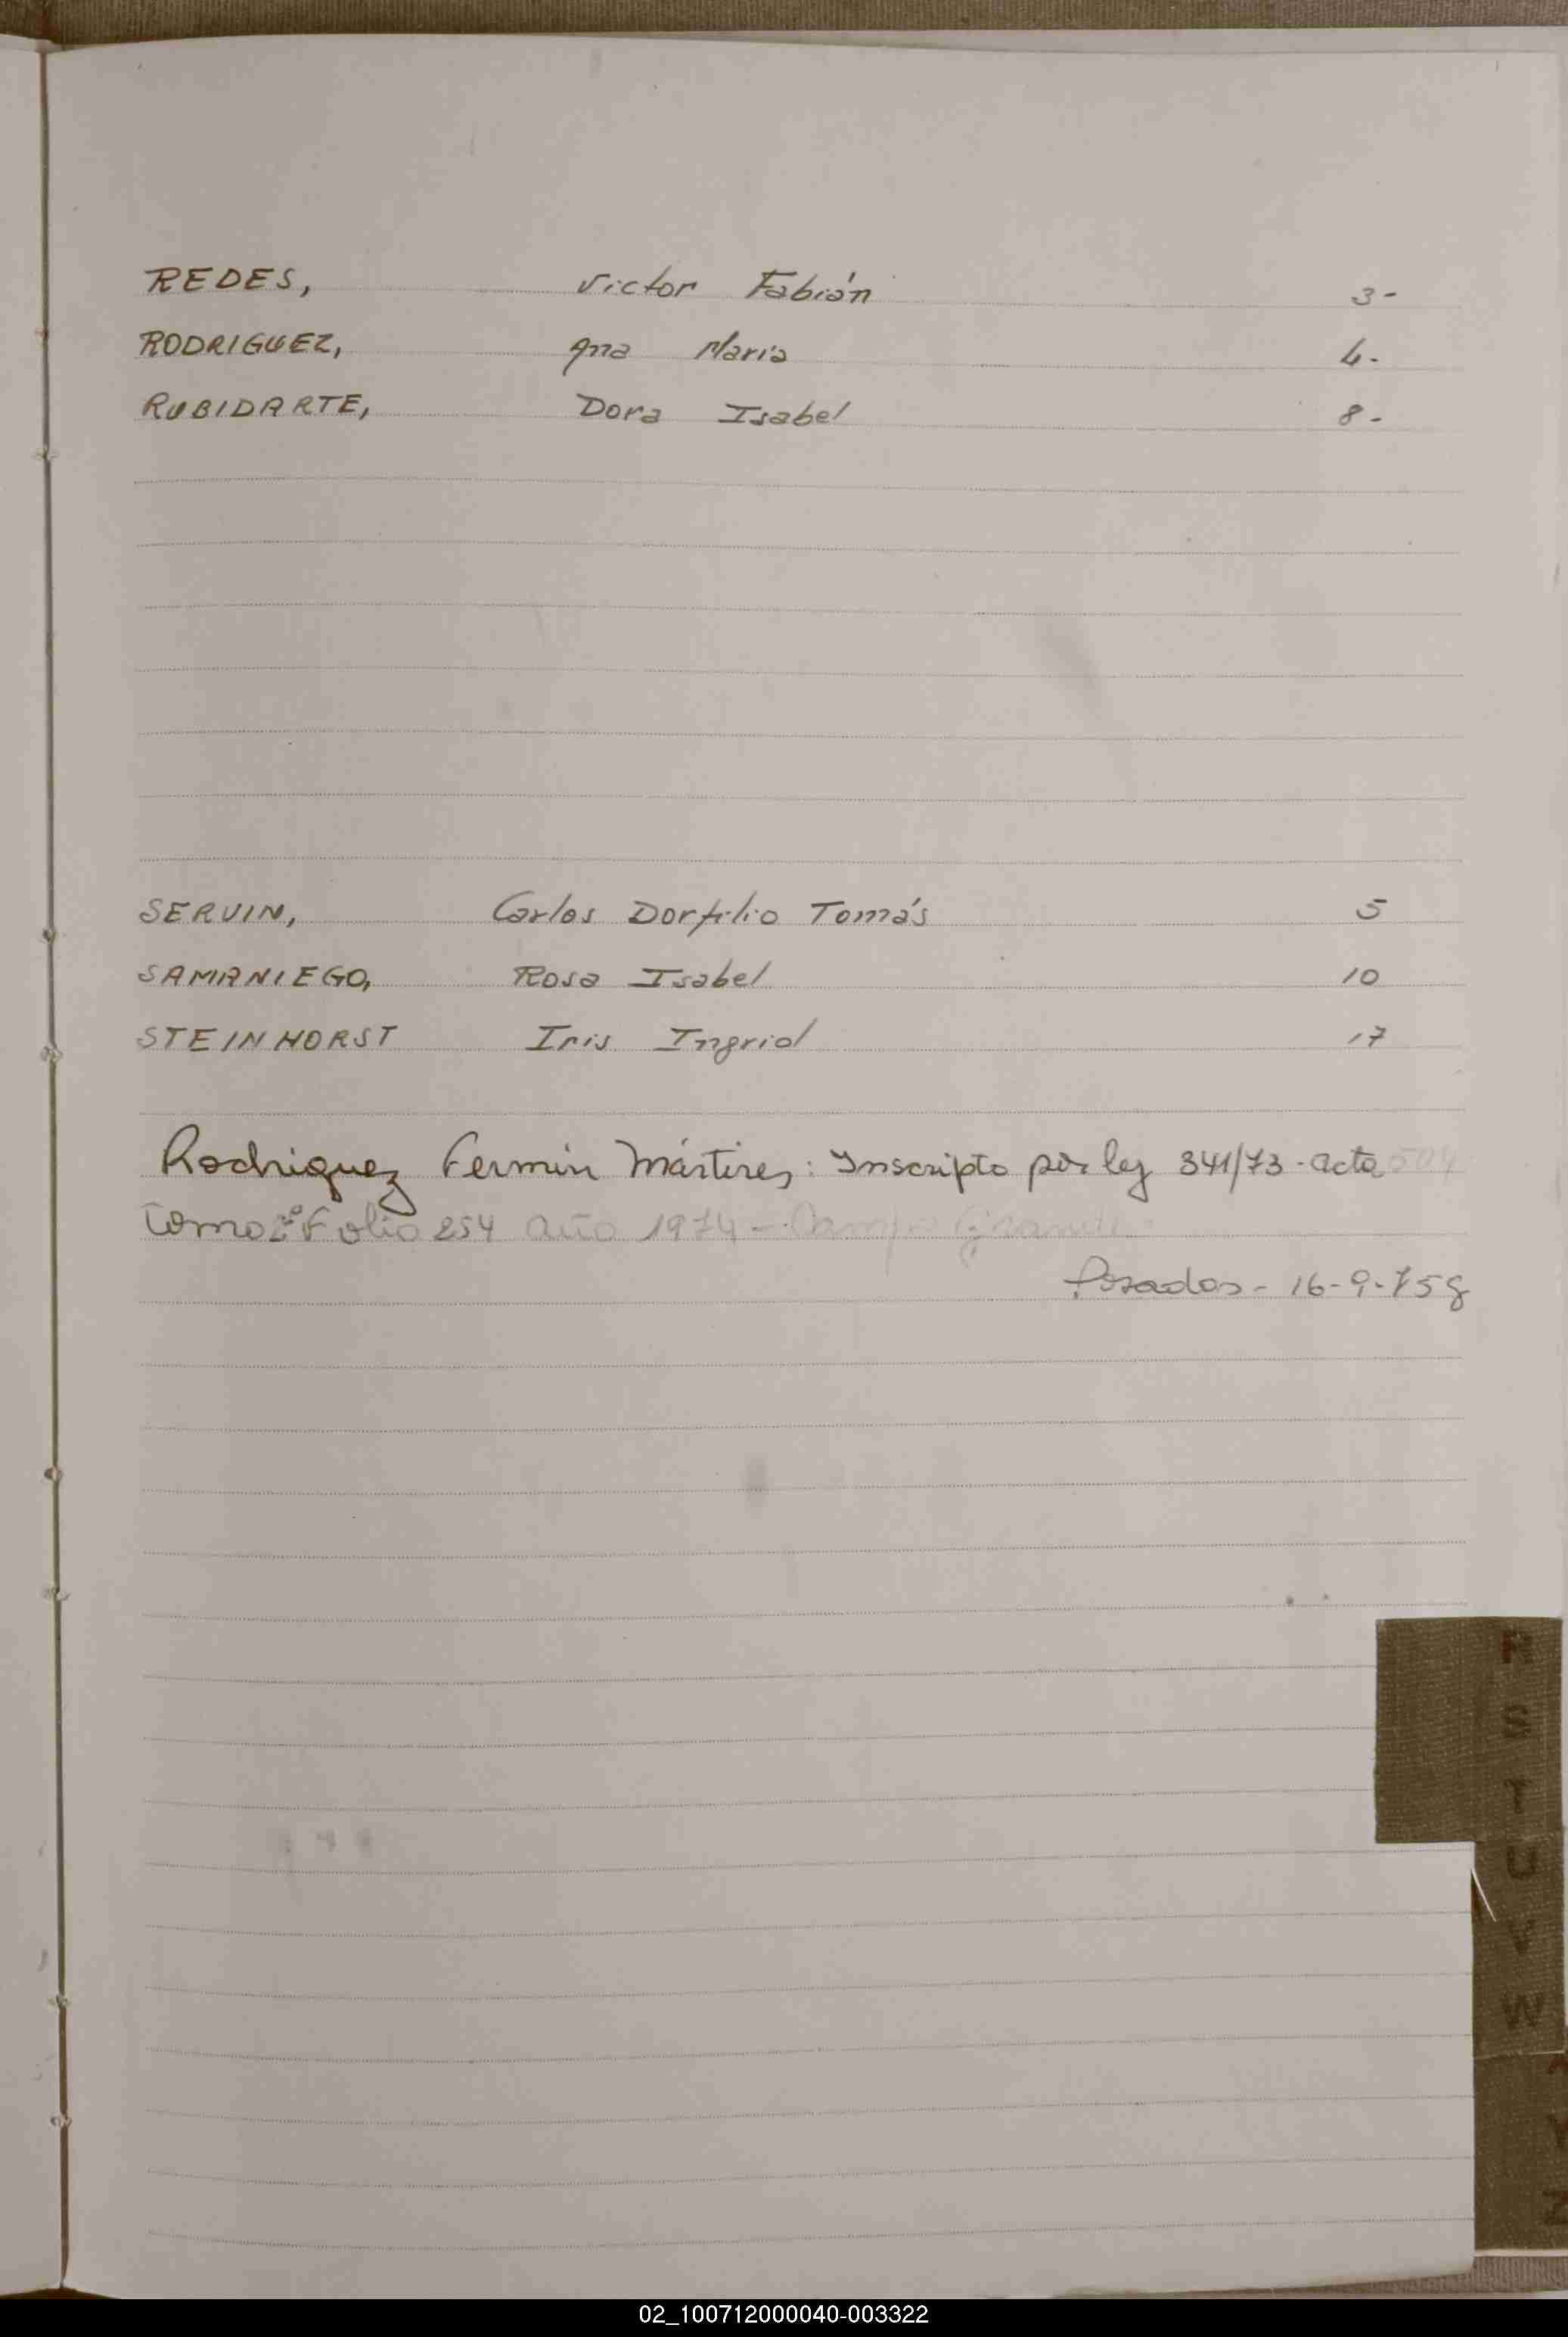 REDES, Victor Fabián 3-
RODRIGUEZ, Ana Maria 4.
RUBIDARTE, Dora Isabel 8-
SERVIN, Carlos Dorfilio Tomás 5
SAMANIEGO, Rosa Isabel 10
STEINHORST Iris Ingrid 17
Rodriguez Fermin Mártires: Inscripto por ley 341/73 - acta 504
Tomo 2º Folio 254 año 1974 - Campo Grande
Posadas - 16-9-75
R
S
T
U
V
W
Y
Z
02_100712000040-003322